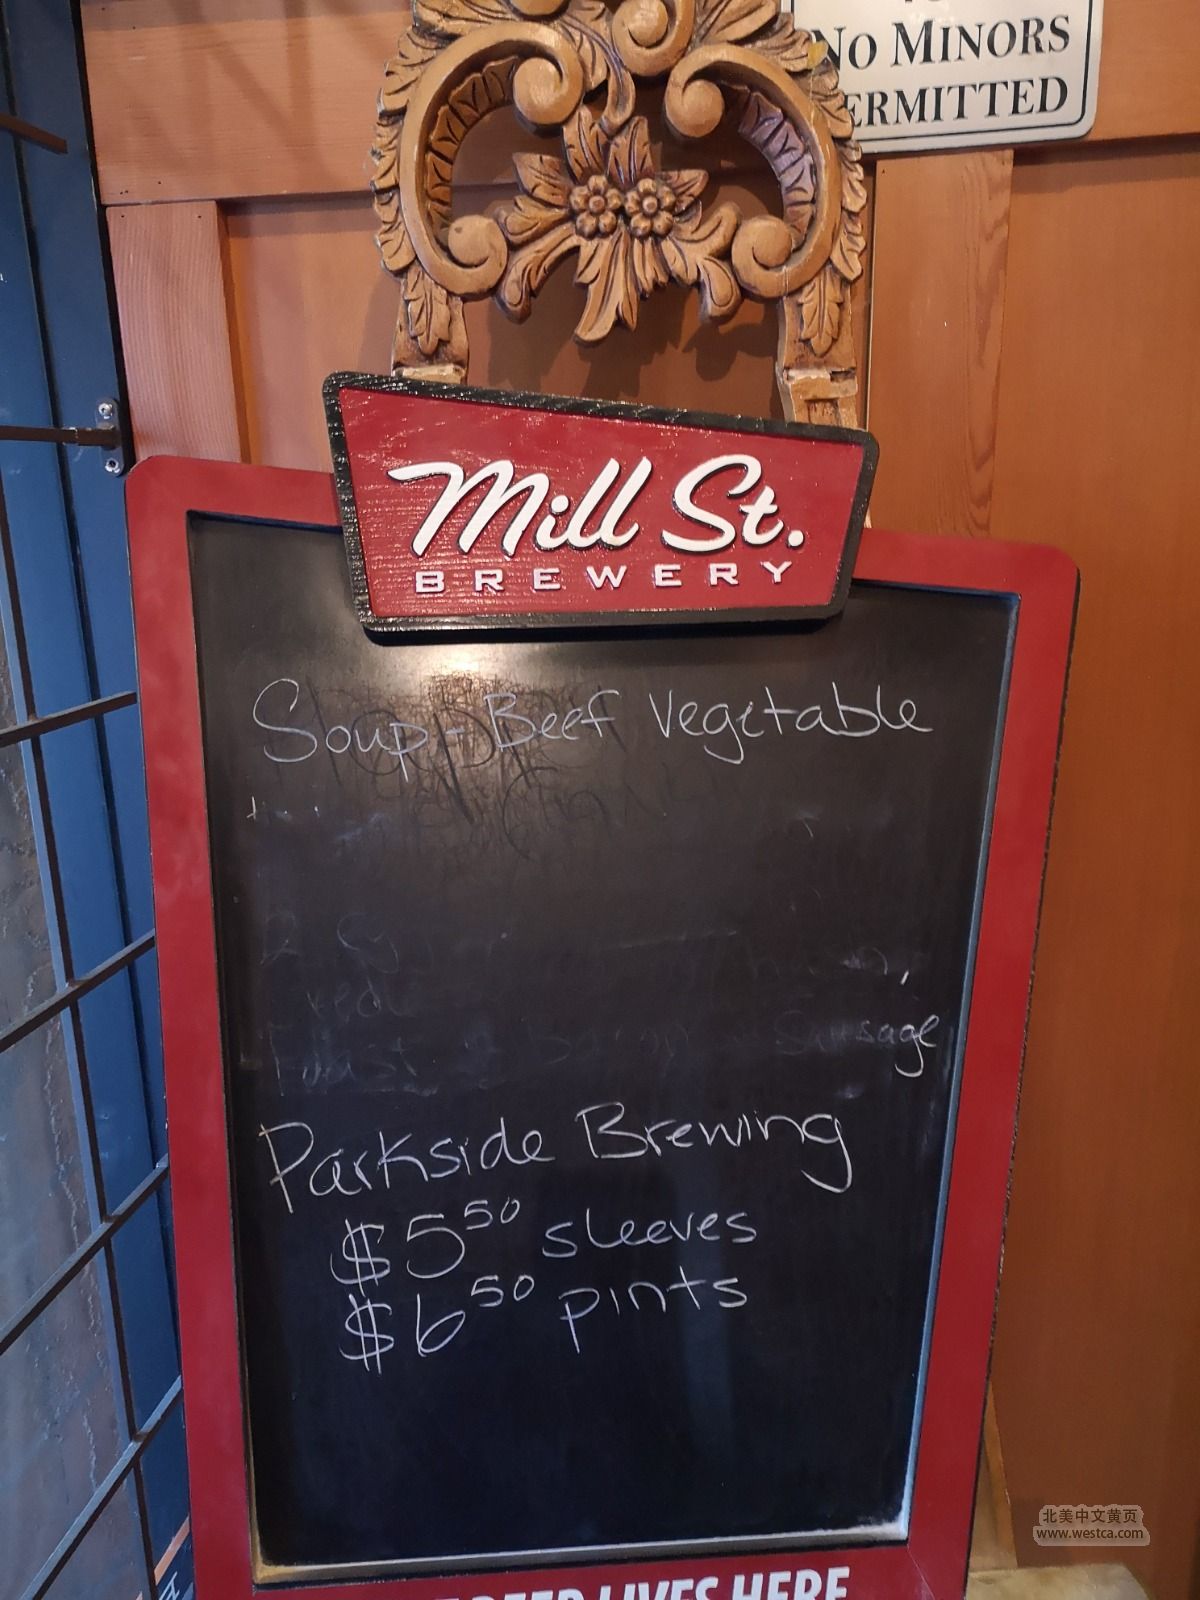 No Minors
Permitted
Mill St.
BREWERY
Soup - Beef Vegetable
Sausage
Parkside Brewing
$5.50 sleeves
$6.50 pints
BEER LIVES HERE
北美中文黄页
www.westca.com